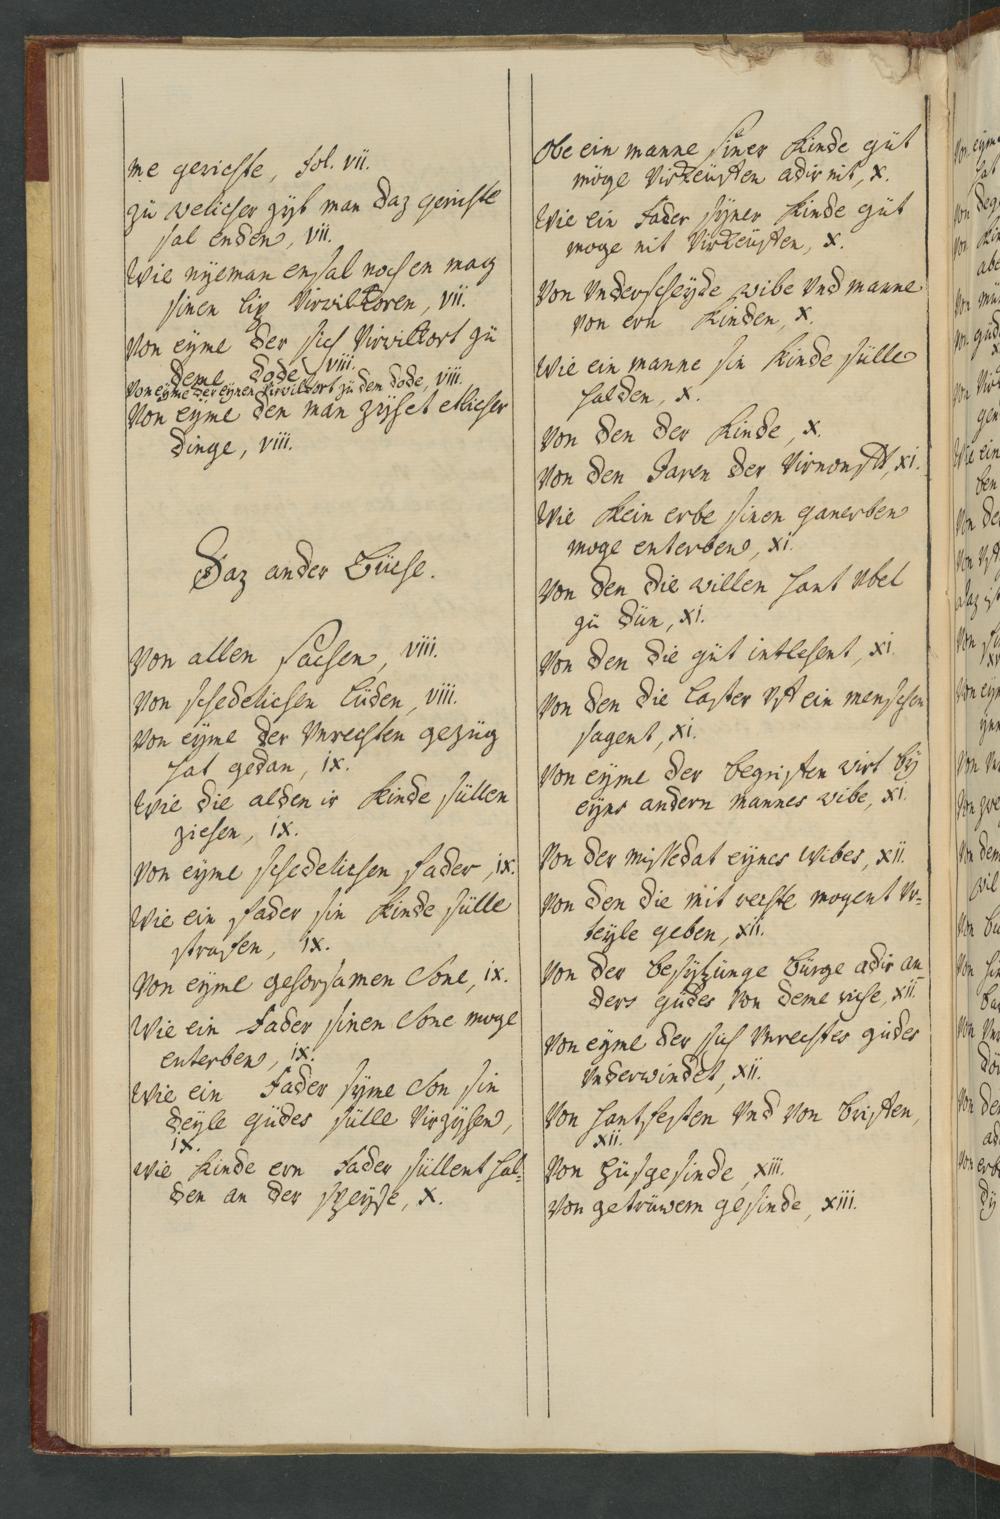 me gerichte, fol. vii.
zü welicher zijt man daz gerichte
sal enden, vii.
Wie nyeman ensal noch en mag
sinen lip virwilkoren, vii.
Von eyme der sich virwilkort zü
deme dode, viii.
Von eyme der eynen virwilkort zü dem dode, viii.
Von eyme den man zyhet etlicher
dinge, viii.
Daz ander Büche.
Von allen sachen, viii.
Von schedelichen lüden, viii.
Von eyme der unrechten gezüg
hat gedan, ix.
Wie die alden ir kinde süllen
ziehen, ix.
Von eyme schedelichen fader, ix.
Wie ein fader sin kinde sülle
strafen, ix.
Von eyme gehorsamen sone, ix.
Wie ein fader sinen sone moge
enterben, ix.
Wie ein fader syme son sin
deyle güdes sülle virzyhen,
ix.
Wie kinde ern fader süllent hal-
den an der speyse, x.
Obe ein manne siner kinde güt
möge virkeüffen adir nit, x.
Wie ein fader syner kinde güt
moge nit virkeüffen, x.
Von underscheyde wibe und manne
von ern kinden, x.
Wie ein manne sin kinde sülle
halden, x.
Von den der kinde, x.
Von den jaren der virnonfft, xi.
Wie kein erbe sinen ganerben
moge enterben, xi.
Von den die willen hant ubel
zü dün, xi.
Von den die güt intlehent, xi.
Von den die laster uff ein menschen
sagent, xi.
Von eyme der begriffen wirt by
eyns andern mannes wibe, xi.
Von der missedat eynes wibes, xii.
Von den die mit rechte mogent ur-
teyle geben, xii.
Von der besytzünge bürge adir an-
ders gudes von deme riche, xii.
Von eyme der sich unrechtes gudes
underwindet, xii.
Von hantfesten und von briffen,
xii.
Von hüsgesinde, xiii.
Von getrüwem gesinde, xiii.